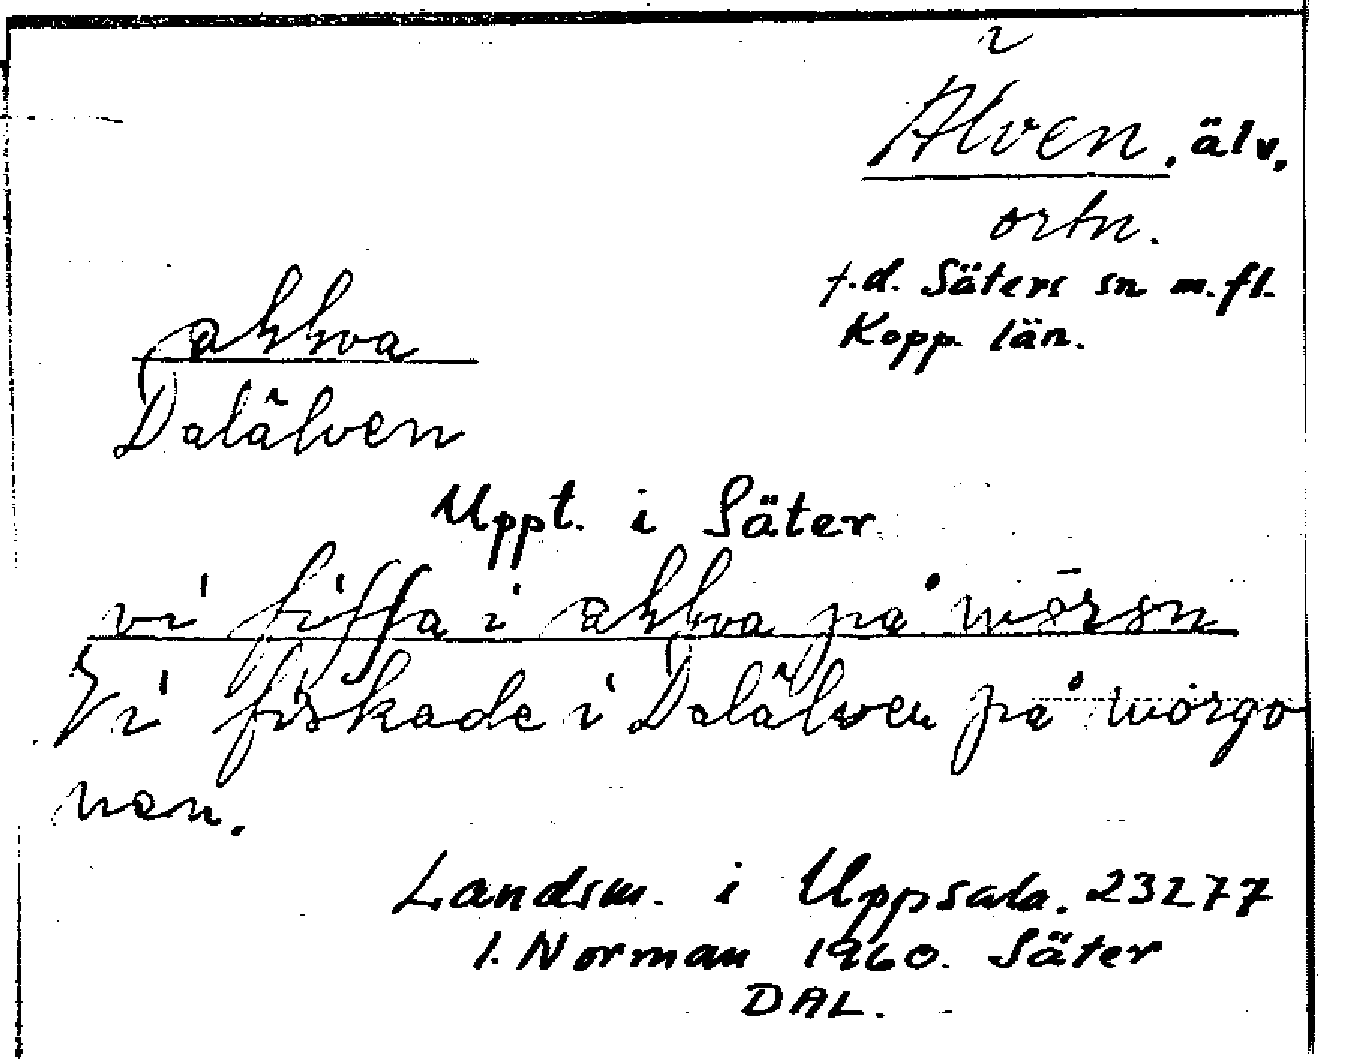 Älven, älv,
ortn.
t.d. Säters sn m.fl.
Kopp. län.
Dalälven
Uppt. i Säter
vi i på
Vi fiskade i Dalälven på morgo
nen.
Landsm. i Uppsala. 23277
I. Norman 1960. Säter
DAL.